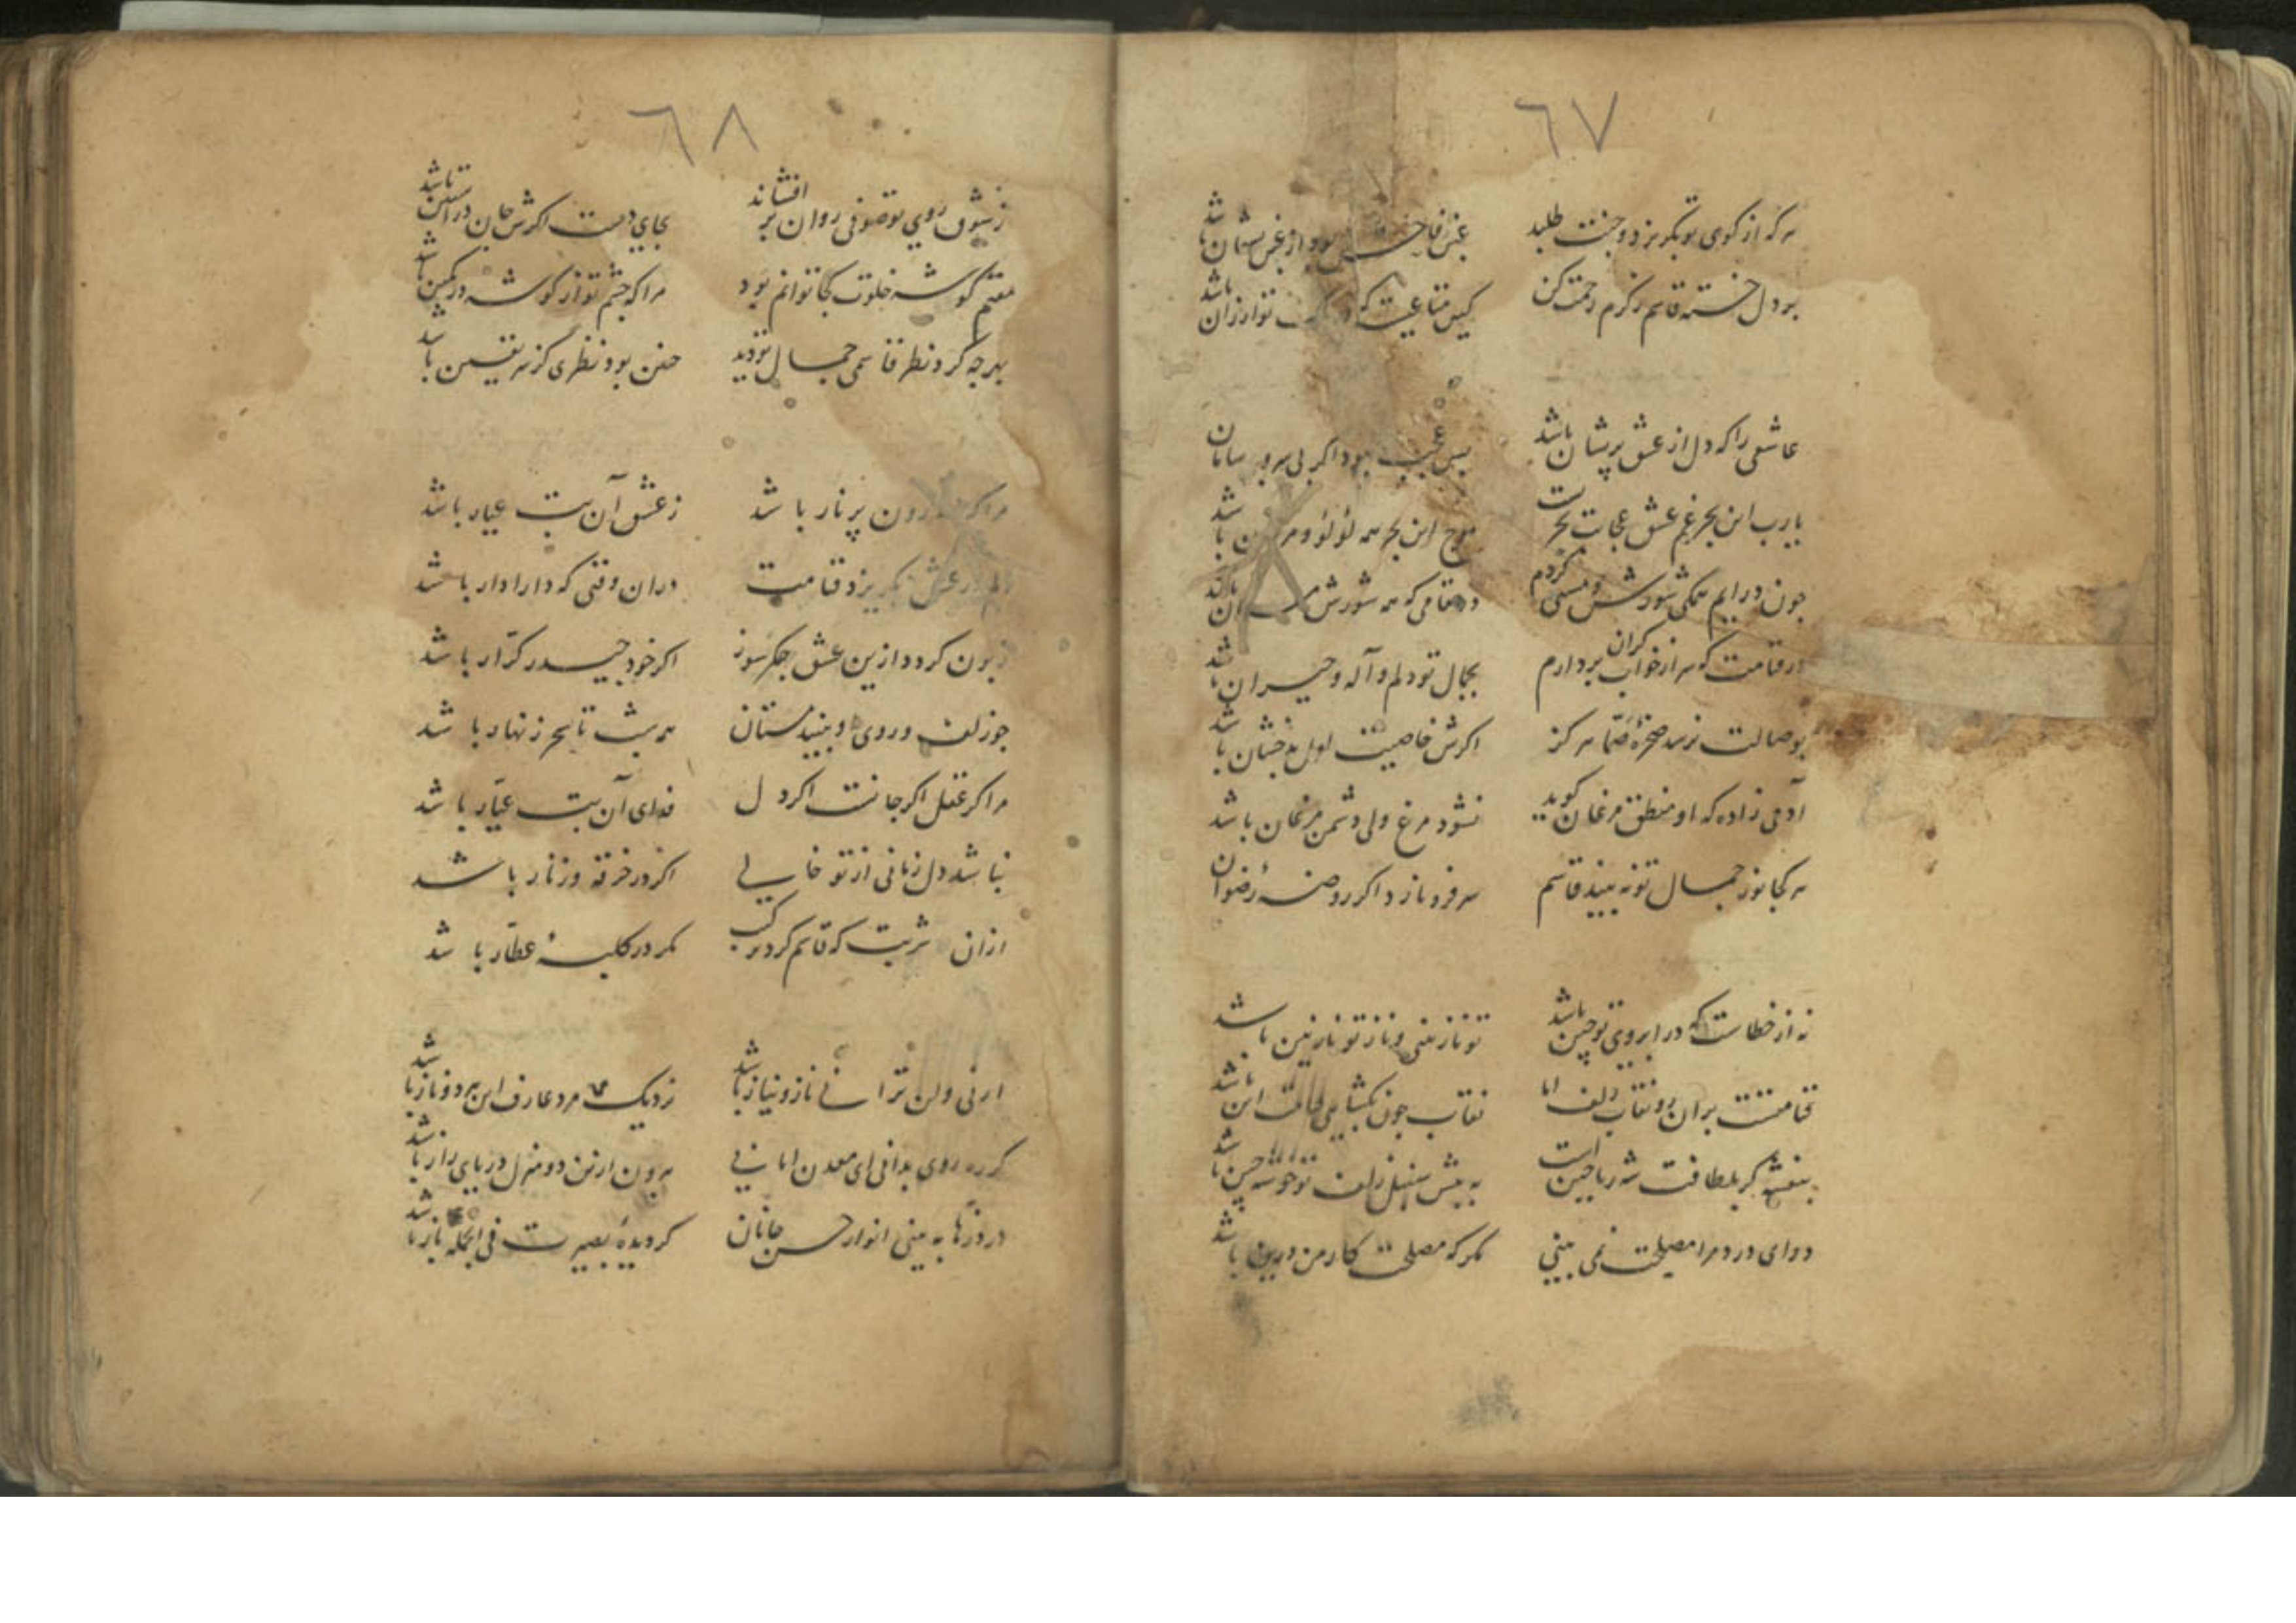 ٦٧
هر که از کوی تو بگریزد و جنت طلبد
بر دل خسته قاسم ز کرم رحمت کن
کین متاعیست که توارزان باشد
عاشقی را که دل از عشق پریشان باشد
بس عجب بود اگر بی سر و سامان
یارب این بحر غم عشق عجایب بحریست
موج این بحر همه لؤلؤ و مرجان باشد
چون درایم همگی شورش و مستی کردم
در مقامی که همه شورش باشد
در قیامت که سر از خواب گران بردارم
بجمال تو دلم واله و حیران باشد
بوصالت نرسد صخره صما هرگز
اگرش خاصیت لعل بدخشان باشد
آدمی زاده که او منطق مرغان گوید
نشود مرغ ولی دشمن مرغان باشد
هر کجا نور جمال تو نه بیند قاسم
سر فرو نارد اگر روضهٔ رضوان
نه از خطاست که در ابروی تو چین باشد
تو نازنینی و ناز تو نازنین باشد
قیامتست بران رو نقاب زلف اما
نقاب چون بگشایی قیامت این باشد
بنفشه گر بلطافت شه ریاحین است
به پیش سنبل زلف تو خوشه چین باشد
دوای درد مرا مصلحت نمی بینی
مگر که مصلحت کار من درین باشد
٦٨
ز شوق روی تو صوفی روان بر افشاند
بجای دست اگرش جان در آستین باشد
مقیم گوشه خلوت کجا توانم بود
مرا که چشم تو از گوشه در کمین باشد
بهر چه کرد نظر قاسمی جمال تو دید
چنین بود نظری کز سر یقین باشد
مرا گر درون پر نار باشد
ز عشق آن بت عیار باشد
دلم در عشق بگریزد قیامت
دران وقتی که دارادار باشد
زبون گردد ازین عشق جگرسوز
اگر خود حیدر کرّار باشد
چو زلف و روی او بینند مستان
همه شب تا سحر زنهار باشد
مرا گر عقل اگر جانست اگر دل
فدای آن بت عیّار باشد
نباشد دل زمانی از تو خالی
اگر در خرقه و زنار باشد
ازان شربت که قاسم کرد ترکیب
مگر در کلبهٔ عطّار باشد
ارنی و لن ترانی ناز و نیاز باشد
نزدیک مرد عارف این هر دو ناز باشد
گر ره روی بدانی ای معدن امانی
بیرون ازین دو منزل دریای راز باشد
در ذرّها به بینی انوار حسن جانان
گر دیدهٔ بصیرت فی الجمله باز باشد